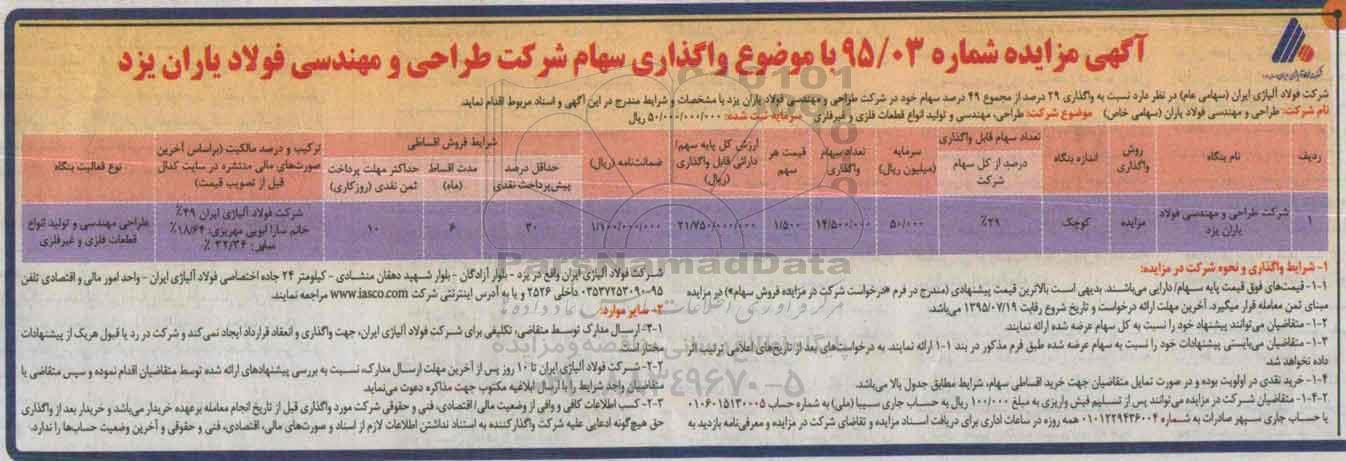 آگهی مزایده شماره ۹۵/۰۳ با موضوع واگذاری سهام شرکت طراحی و مهندسی فولاد یاران یزد
شرکت فولاد آلیاژی ایران (سهامی عام) در نظر دارد نسبت به واگذاری ۲۹ درصد از مجموع ۴۹ درصد سهام خود در شرکت طراحی و مهندسی فولاد یاران یزد با مشخصات و شرایط مندرج در این آگهی و اسناد مربوط اقدام نماید.
نام شرکت: طراحی و مهندسی فولاد یاران (سهامی خاص) موضوع شرکت: طراحی، مهندسی و تولید انواع قطعات فلزی و غیرفلزی سرمایه ثبت شده: ۵۰/۰۰۰/۰۰۰/۰۰۰ ریال
ردیف نام بنگاه روش واگذاری اندازه بنگاه تعداد سهام قابل واگذاری درصد از کل سهام شرکت سرمایه (میلیون ریال) تعداد سهام واگذاری قیمت هر سهم ارزش کل پایه سهم/ دارائی قابل واگذاری (ریال) ضمانت‌نامه (ریال) شرایط فروش اقساطی حداقل درصد پیش‌پرداخت نقدی مدت اقساط (ماه) حداکثر مهلت پرداخت ثمن نقدی (روزکاری) ترکیب و درصد مالکیت (براساس آخرین صورت‌های مالی منتشره در سایت کدال قبل از تصویب قیمت) نوع فعالیت بنگاه
۱ شرکت طراحی و مهندسی فولاد یاران یزد مزایده کوچک ۲۹٪ ۵۰/۰۰۰ ۱۴/۵۰۰/۰۰۰ ۱/۵۰۰ ۲۱/۷۵۰/۰۰۰/۰۰۰ ۱/۱۰۰/۰۰۰/۰۰۰ ۳۰ ۶ ۱۰ شرکت فولاد آلیاژی ایران ۴۹٪ خانم سارا ایوبی مهریزی: ۱۸/۶۴٪ سایر: ۳۲/۳۶ ٪ طراحی مهندسی و تولید انواع قطعات فلزی و غیرفلزی
۱- شرایط واگذاری و نحوه شرکت در مزایده:
۱-۱- قیمت‌های فوق قیمت پایه سهام/ دارایی می‌باشند. بدیهی است بالاترین قیمت پیشنهادی (مندرج در فرم «درخواست شرکت در مزایده فروش سهام») در مزایده
مبنای ثمن معامله قرار میگیرد. آخرین مهلت ارائه درخواست و تاریخ شروع رقابت ۱۳۹۵/۰۷/۱۹ می‌باشد.
۱-۲- متقاضیان می‌توانند پیشنهاد خود را نسبت به کل سهام عرضه شده ارائه نمایند.
۱-۳- متقاضیان می‌بایستی پیشنهادات خود را نسبت به سهام عرضه شده طبق فرم مذکور در بند ۱-۱ ارائه نمایند. به درخواست‌های بعد از تاریخ‌های اعلامی ترتیب اثر
داده نخواهد شد.
۱-۴- خرید نقدی در اولویت بوده و در صورت تمایل متقاضیان جهت خرید اقساطی سهام، شرایط مطابق جدول بالا می‌باشد.
۱-۴-۲- متقاضیان شرکت در مزایده می‌توانند پس از تسلیم فیش واریزی به مبلغ ۱۰۰/۰۰۰ ریال به حساب جاری سیبا (ملی) به شماره حساب ۰۱۰۶۰۱۵۱۳۰۰۰۵
یا حساب جاری سپهر صادرات به شماره ۰۱۰۱۲۲۹۴۳۶۰۰۴ همه روزه در ساعات اداری برای دریافت اسناد مزایده و تقاضای شرکت در مزایده و معرفی‌نامه بازدید به
شرکت فولاد آلیاژی ایران واقع در یزد - بلوار آزادگان - بلوار شهید دهقان منشادی - کیلومتر ۲۴ جاده اختصاصی فولاد آلیاژی ایران - واحد امور مالی و اقتصادی تلفن
۹۵-۰۳۵۳۷۲۵۳۰۹۰ داخلی ۲۵۲۶ و یا به آدرس اینترنتی شرکت www.iasco.com مراجعه نمایند.
۲- سایر موارد:
۲-۱- ارسال مدارک توسط متقاضی، تکلیفی برای شرکت فولاد آلیاژی ایران، جهت واگذاری و انعقاد قرارداد ایجاد نمی‌کند و شرکت در رد یا قبول هریک از پیشنهادات
مختار است.
۲-۲- شرکت فولاد آلیاژی ایران تا ۱۰ روز پس از آخرین مهلت ارسال مدارک، نسبت به بررسی پیشنهادهای ارائه شده توسط متقاضیان اقدام نموده و سپس متقاضی یا
متقاضیان واجد شرایط را با ارسال ابلاغیه مکتوب جهت مذاکره دعوت می‌نماید.
۲-۳- کسب اطلاعات کافی و وافی از وضعیت مالی/ اقتصادی، فنی و حقوقی شرکت مورد واگذاری قبل از تاریخ انجام معامله برعهده خریدار می‌باشد و خریدار بعد از واگذاری
حق هیچ‌گونه ادعایی علیه شرکت واگذارکننده به استناد نداشتن اطلاعات لازم از اسناد و صورت‌های مالی، اقتصادی، فنی و حقوقی و آخرین وضعیت حساب‌ها را ندارد.
ParsNamadData